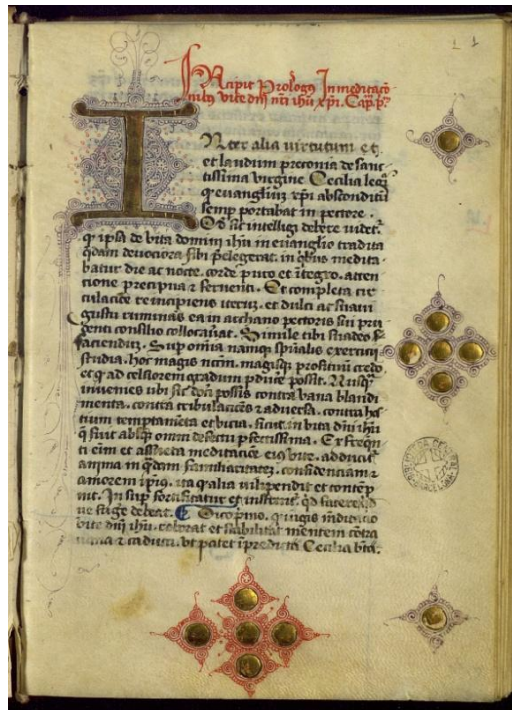 Incipit Prologus In meditacõ
nibus vite dñi nr̃i ihũ xp̃i. Cap. pº
Inter alia virtutum et
et laudum preconia de sanc
tissima virgine Cecilia legit̃
q̃ evangliũ xp̃i absconditũ
semp portabat in pectore.
sic intelligi debere videt̃.
q̃ ipsa de vita domini ihũ in evanglio tradita
q̃dam devociora sibi p̃elegerat. in q̃bus medita
batur die ac nocte. corde puro et ĩtegro. atten
cione precipua z ferventi. Et completa cir
culacõe reincipiens iterũ. et dulci ac suavi
gustu ruminãs ea in archano pectoris sui pru
denti consilio collocavat. Simile tibi suadeo
faciendũ. Sup om̃ia namq̃ spũalis exercicii
studia. hoc magis nccm̃. magisq̃ profituũ credo
et q̃ ad celsiorem gradum pducere possit. Nusq̃
invenies ubi sic doceri possis contra vana blandi
menta. contra tribulacões z adversa. contra hos
tium temptamẽta et vicia. sicut in vita dñi ihũ
q̃ fuit absq̃ omni defectu pfectissima. Ex freq̃n
ti eim̃ et assueta meditacione eius vite. adducit̃
anima in q̃dam familiaritatẽ. confidenciam z
amorem ip̃ius. ita q̃ alia vilipendit et contẽp
nit. In sup fortificatur et instruit̃. q̃d facere q̃d
ve fugere debeat. Dico pimo. q̃ iugis meditacio
vite dñi ihũ. roborat et stabilitat mentem cõtra
vana z caduca. ut patet ĩ predicta Cecilia bt̃a.